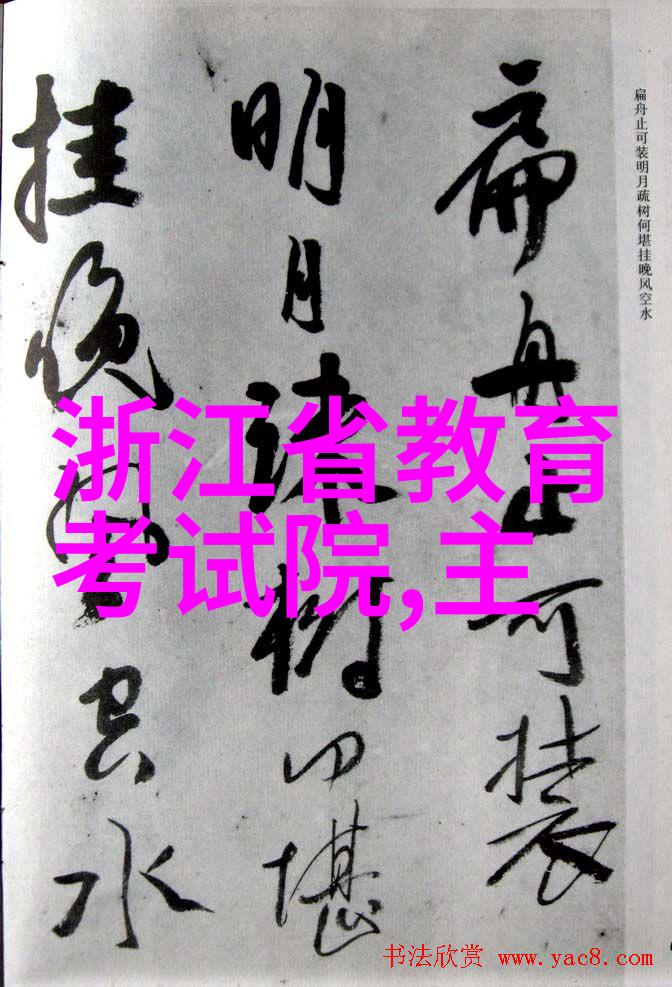 扁舟止可装明月疏树何堪挂晚风空水
扁舟止可装
明月疏树何堪
挂晚风空水
浙江省教育
考试院,主
书法欣赏 www.yac8.com